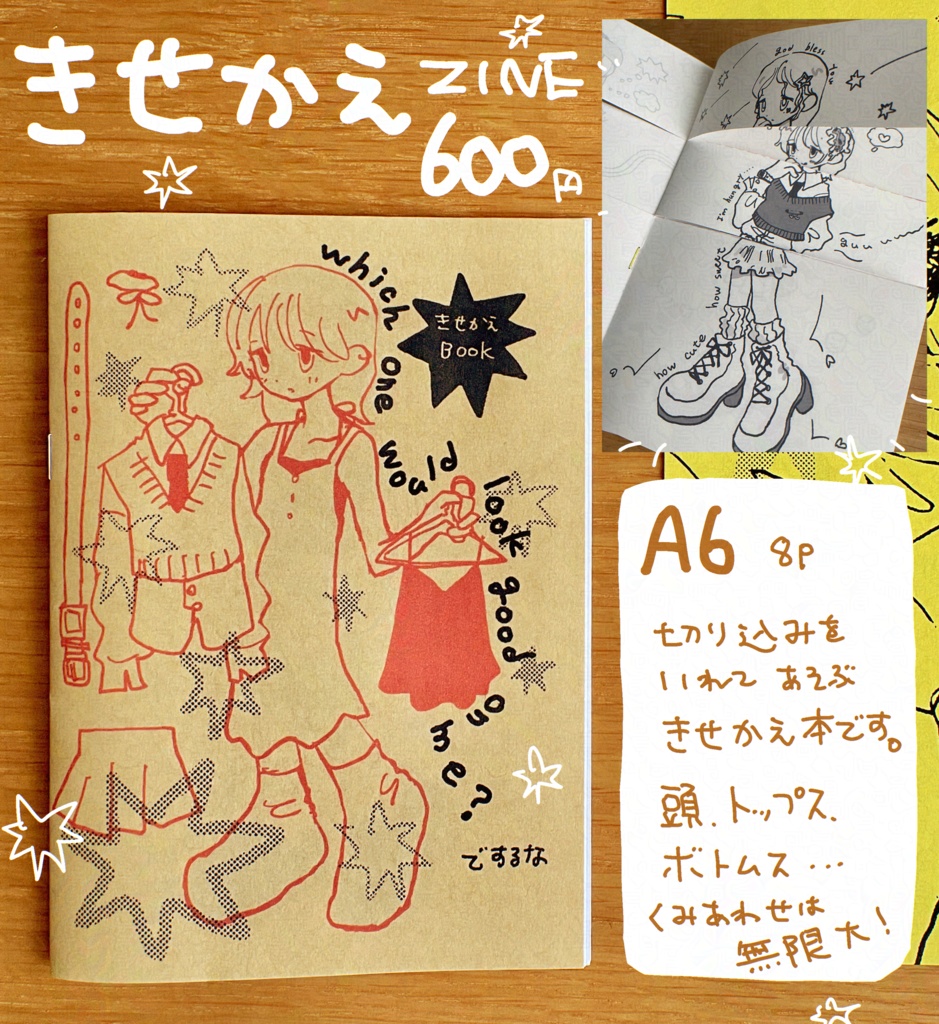 きせかえ ZINE
600円
god bless you
I'm hungry....
zuu
how sweet
how cute
which one would look good on me?
きせかえ
BOOK
でするな
A6 8P
切り込みを
いれて あそぶ
きせかえ本です。
頭、トップス、
ボトムス…
くみあわせは
無限大!